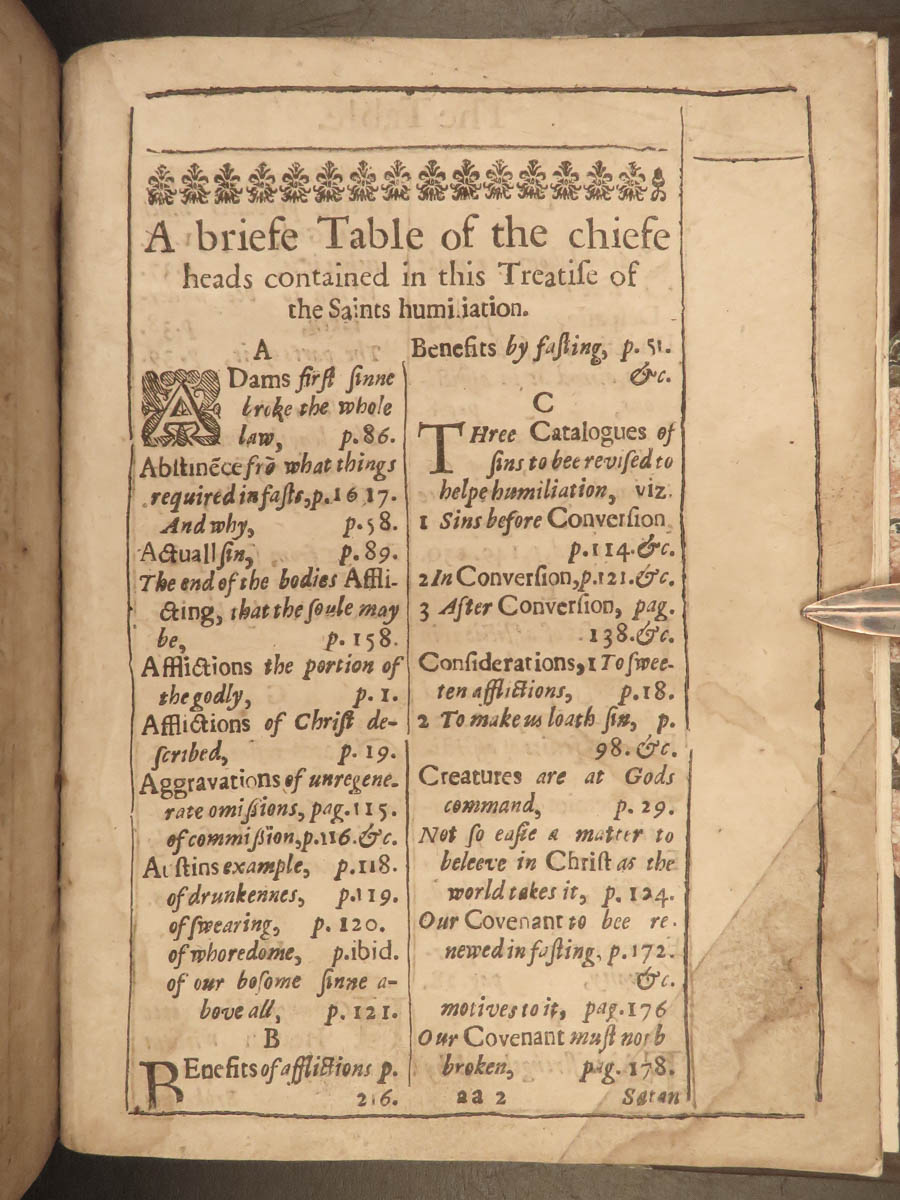 A briefe Table of the chiefe
heads contained in this Treatiſe of
the Saints humiliation.
A
ADams firſt ſinne
broke the whole
law, p.86.
Abſtinēce frō what things
required in faſts, p.16 17.
And why, p.58.
Actuall ſin, p.89.
The end of the bodies Affli-
cting, that the ſoule may
be, p. 158.
Afflictions the portion of
the godly, p. 1.
Afflictions of Chriſt de-
ſcribed, p. 19.
Aggravations of unregene-
rate omiſsions, pag.115.
of commiſsion, p.116.&c.
Auſtins example, p.118.
of drunkennes, p.119.
of ſwearing, p. 120.
of whoredome, p.ibid.
of our boſome ſinne a-
bove all, p. 121.
B
BEnefits of afflictions p.
216.
Benefits by faſting, p. 51.
&c.
C
THree Catalogues of
ſins to bee reviſed to
helpe humiliation, viz.
1 Sins before Converſion
p.114.&c.
2 In Converſion, p.121.&c.
3 After Converſion, pag.
138.&c.
Conſiderations, 1 To ſwee-
ten afflictions, p.18.
2 To make us loath ſin, p.
98. &c.
Creatures are at Gods
command, p. 29.
Not ſo eaſie a matter to
beleeve in Chriſt as the
world takes it, p. 124.
Our Covenant to bee re-
newed in faſting, p.172.
&c.
motives to it, pag.176
Our Covenant muſt not b
broken, pag. 178.
aa 2 Satan